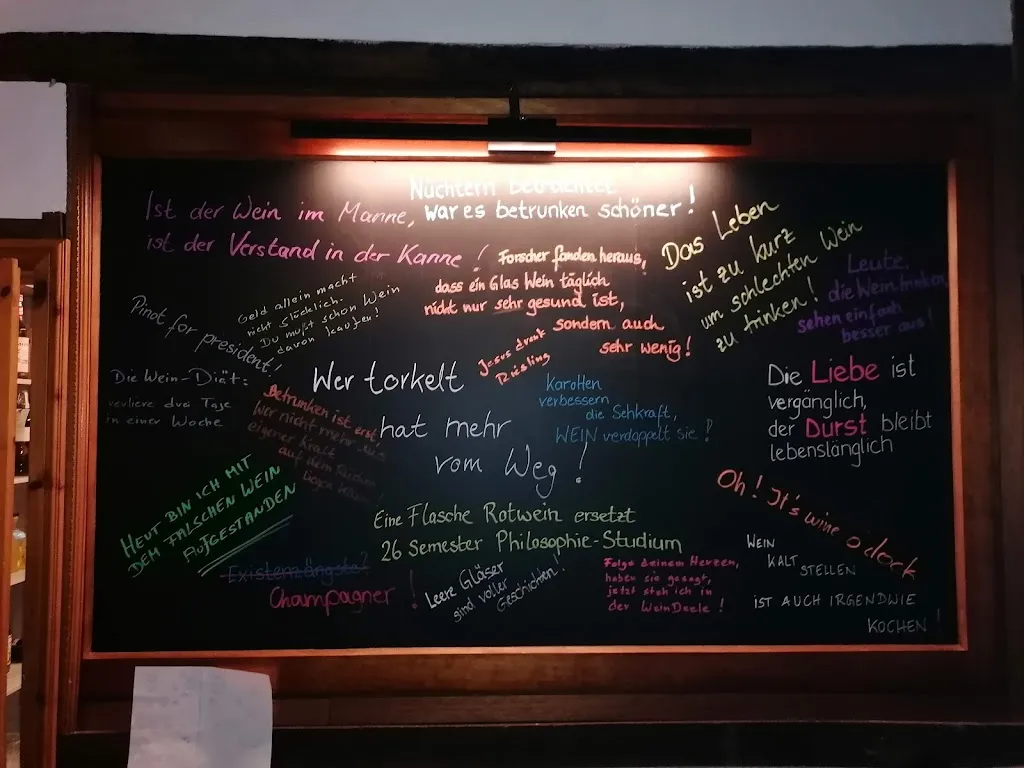 Nüchtern betrachtet
war es betrunken schöner!
Ist der Wein im Manne,
ist der Verstand in der Kanne!
Forscher fanden heraus,
dass ein Glas Wein täglich
nicht nur sehr gesund ist,
sondern auch
sehr wenig!
Das Leben
ist zu kurz
um schlechten Wein
zu trinken!
Leute,
die Wein trinken,
sehen einfach
besser aus!
Geld allein macht
nicht glücklich.
Du mußt schon Wein
davon kaufen!
Pinot for president!
Jesus drank
Riesling
Die Wein-Diät:
verliere drei Tage
in einer Woche
Betrunken ist erst
wer nicht mehr aus
eigener Kraft
auf dem Boden
liegen
Wer torkelt
hat mehr
vom Weg!
Karotten
verbessern
die Sehkraft,
WEIN verdoppelt sie!
Die Liebe ist
vergänglich,
der Durst bleibt
lebenslänglich
HEUT BIN ICH MIT
DEM FALSCHEN WEIN
AUFGESTANDEN
Eine Flasche Rotwein ersetzt
26 Semester Philosophie-Studium
Oh! It's wine o'clock
Existenzängste?
Champagner!
Leere Gläser
sind voller
Geschichten!
Folge deinem Herzen,
haben sie gesagt,
jetzt steh ich in
der WeinDeele!
WEIN
KALT
STELLEN
IST AUCH IRGENDWIE
KOCHEN!